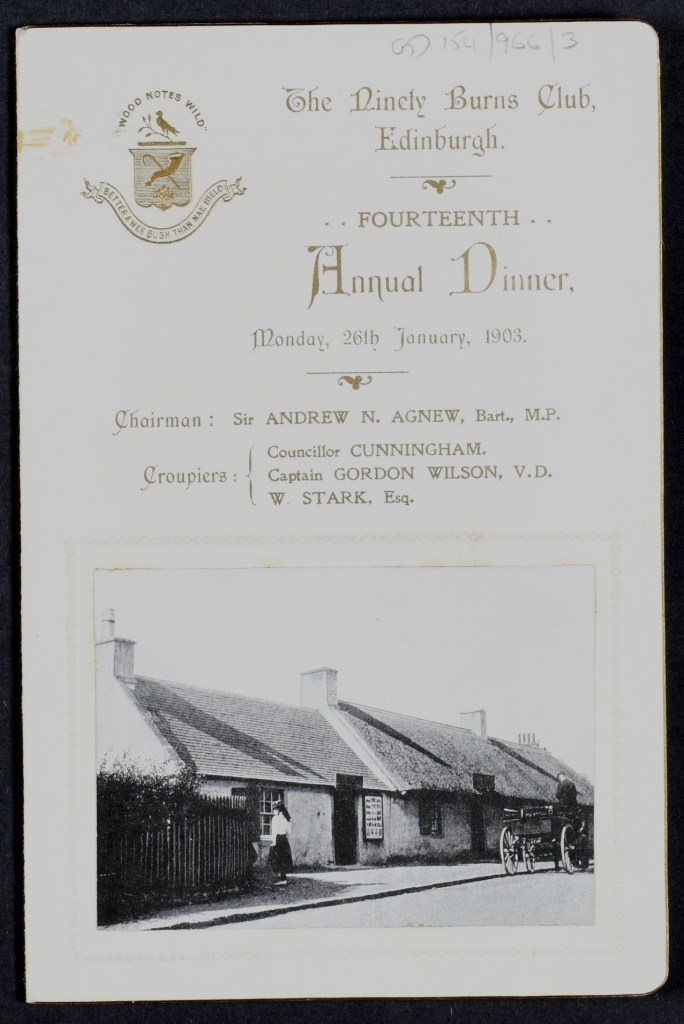 GD 154/966/3
"WOOD NOTES WILD"
BETTER A WEE BUSH THAN NAE BIELD
The Ninety Burns Club,
Edinburgh.
.. FOURTEENTH ..
Annual Dinner,
Monday, 26th January, 1903.
Chairman: Sir ANDREW N. AGNEW, Bart., M.P.
Croupiers:
Councillor CUNNINGHAM.
Captain GORDON WILSON, V.D.
W. STARK, Esq.